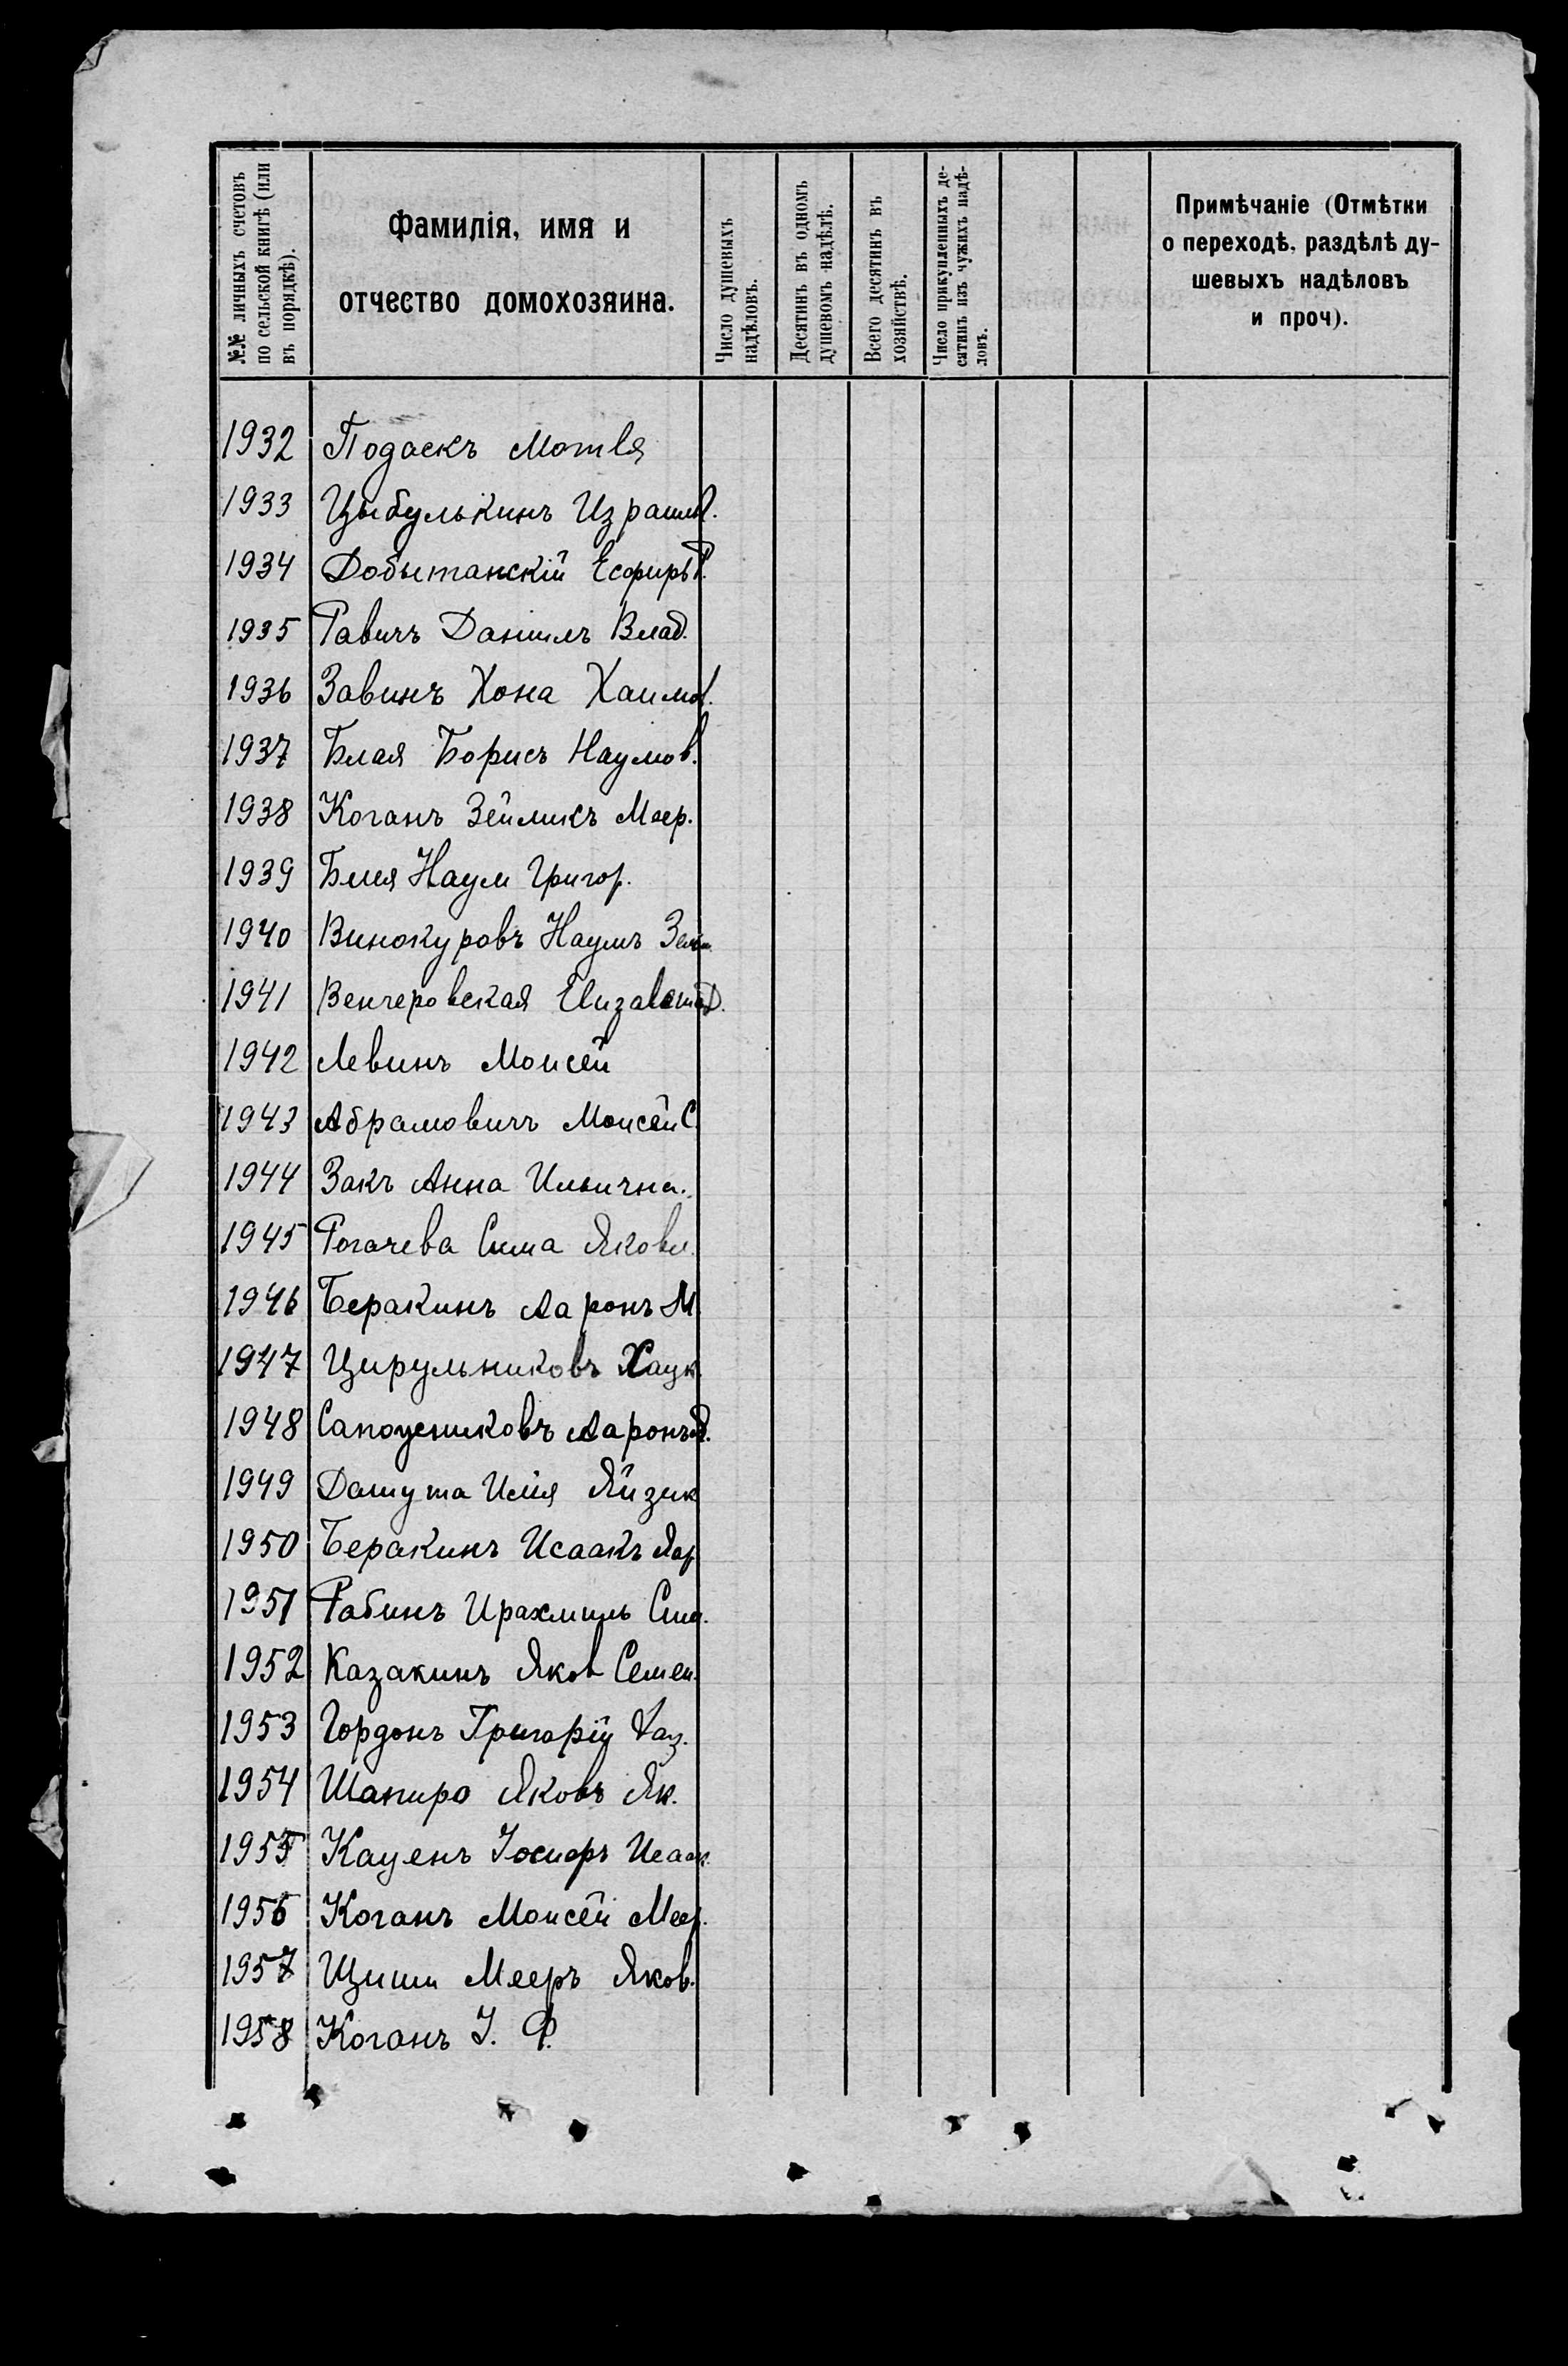 №№ личныхъ счетовъ
по сельской книгѣ (или
въ порядкѣ).
Фамилія, имя и
отчество домохозяина.
Число душевыхъ
надѣловъ.
Десятинъ въ одномъ
душевомъ надѣлѣ.
Всего десятинъ въ
хозяйствѣ.
Число прикупленныхъ де-
сятинъ изъ чужихъ надѣ-
ловъ.
Примѣчаніе (Отмѣтки
о переходѣ, раздѣлѣ ду-
шевыхъ надѣловъ
и проч).
1932 Подаекъ Мотля
1933 Цыбулькинъ Израил
1934 Добытанскій Есфирь
1935 Равичъ Даніилъ Влад.
1936 Завинъ Хона Хаимов.
1937 Блая Борисъ Наумов.
1938 Коганъ Зеймикъ Меер.
1939 Наум Григор.
1940 Винокуровъ Наумъ
1941 Венчеровская Елизавета
1942 Левинъ Моисей
1943 Абрамовичъ Моисей С.
1944 Закъ Анна Ильична.
1945 Рогачева Сима Яковл.
1946 Беракинъ Ааронъ М.
1947 Цирульниковъ
1948 Ааронъ
1949 Дашута Илія Айзик
1950 Беракинъ Исаакъ
1951 Рабинъ Ирахмиль
1952 Казакинъ Яков Семен.
1953 Гордонъ Григорій
1954 Шапиро Яковъ Як.
1955 Каценъ Іосифъ Исаак.
1956 Коганъ Моисей Меер.
1957 Мееръ Яков.
1958 Коганъ І. Ф.